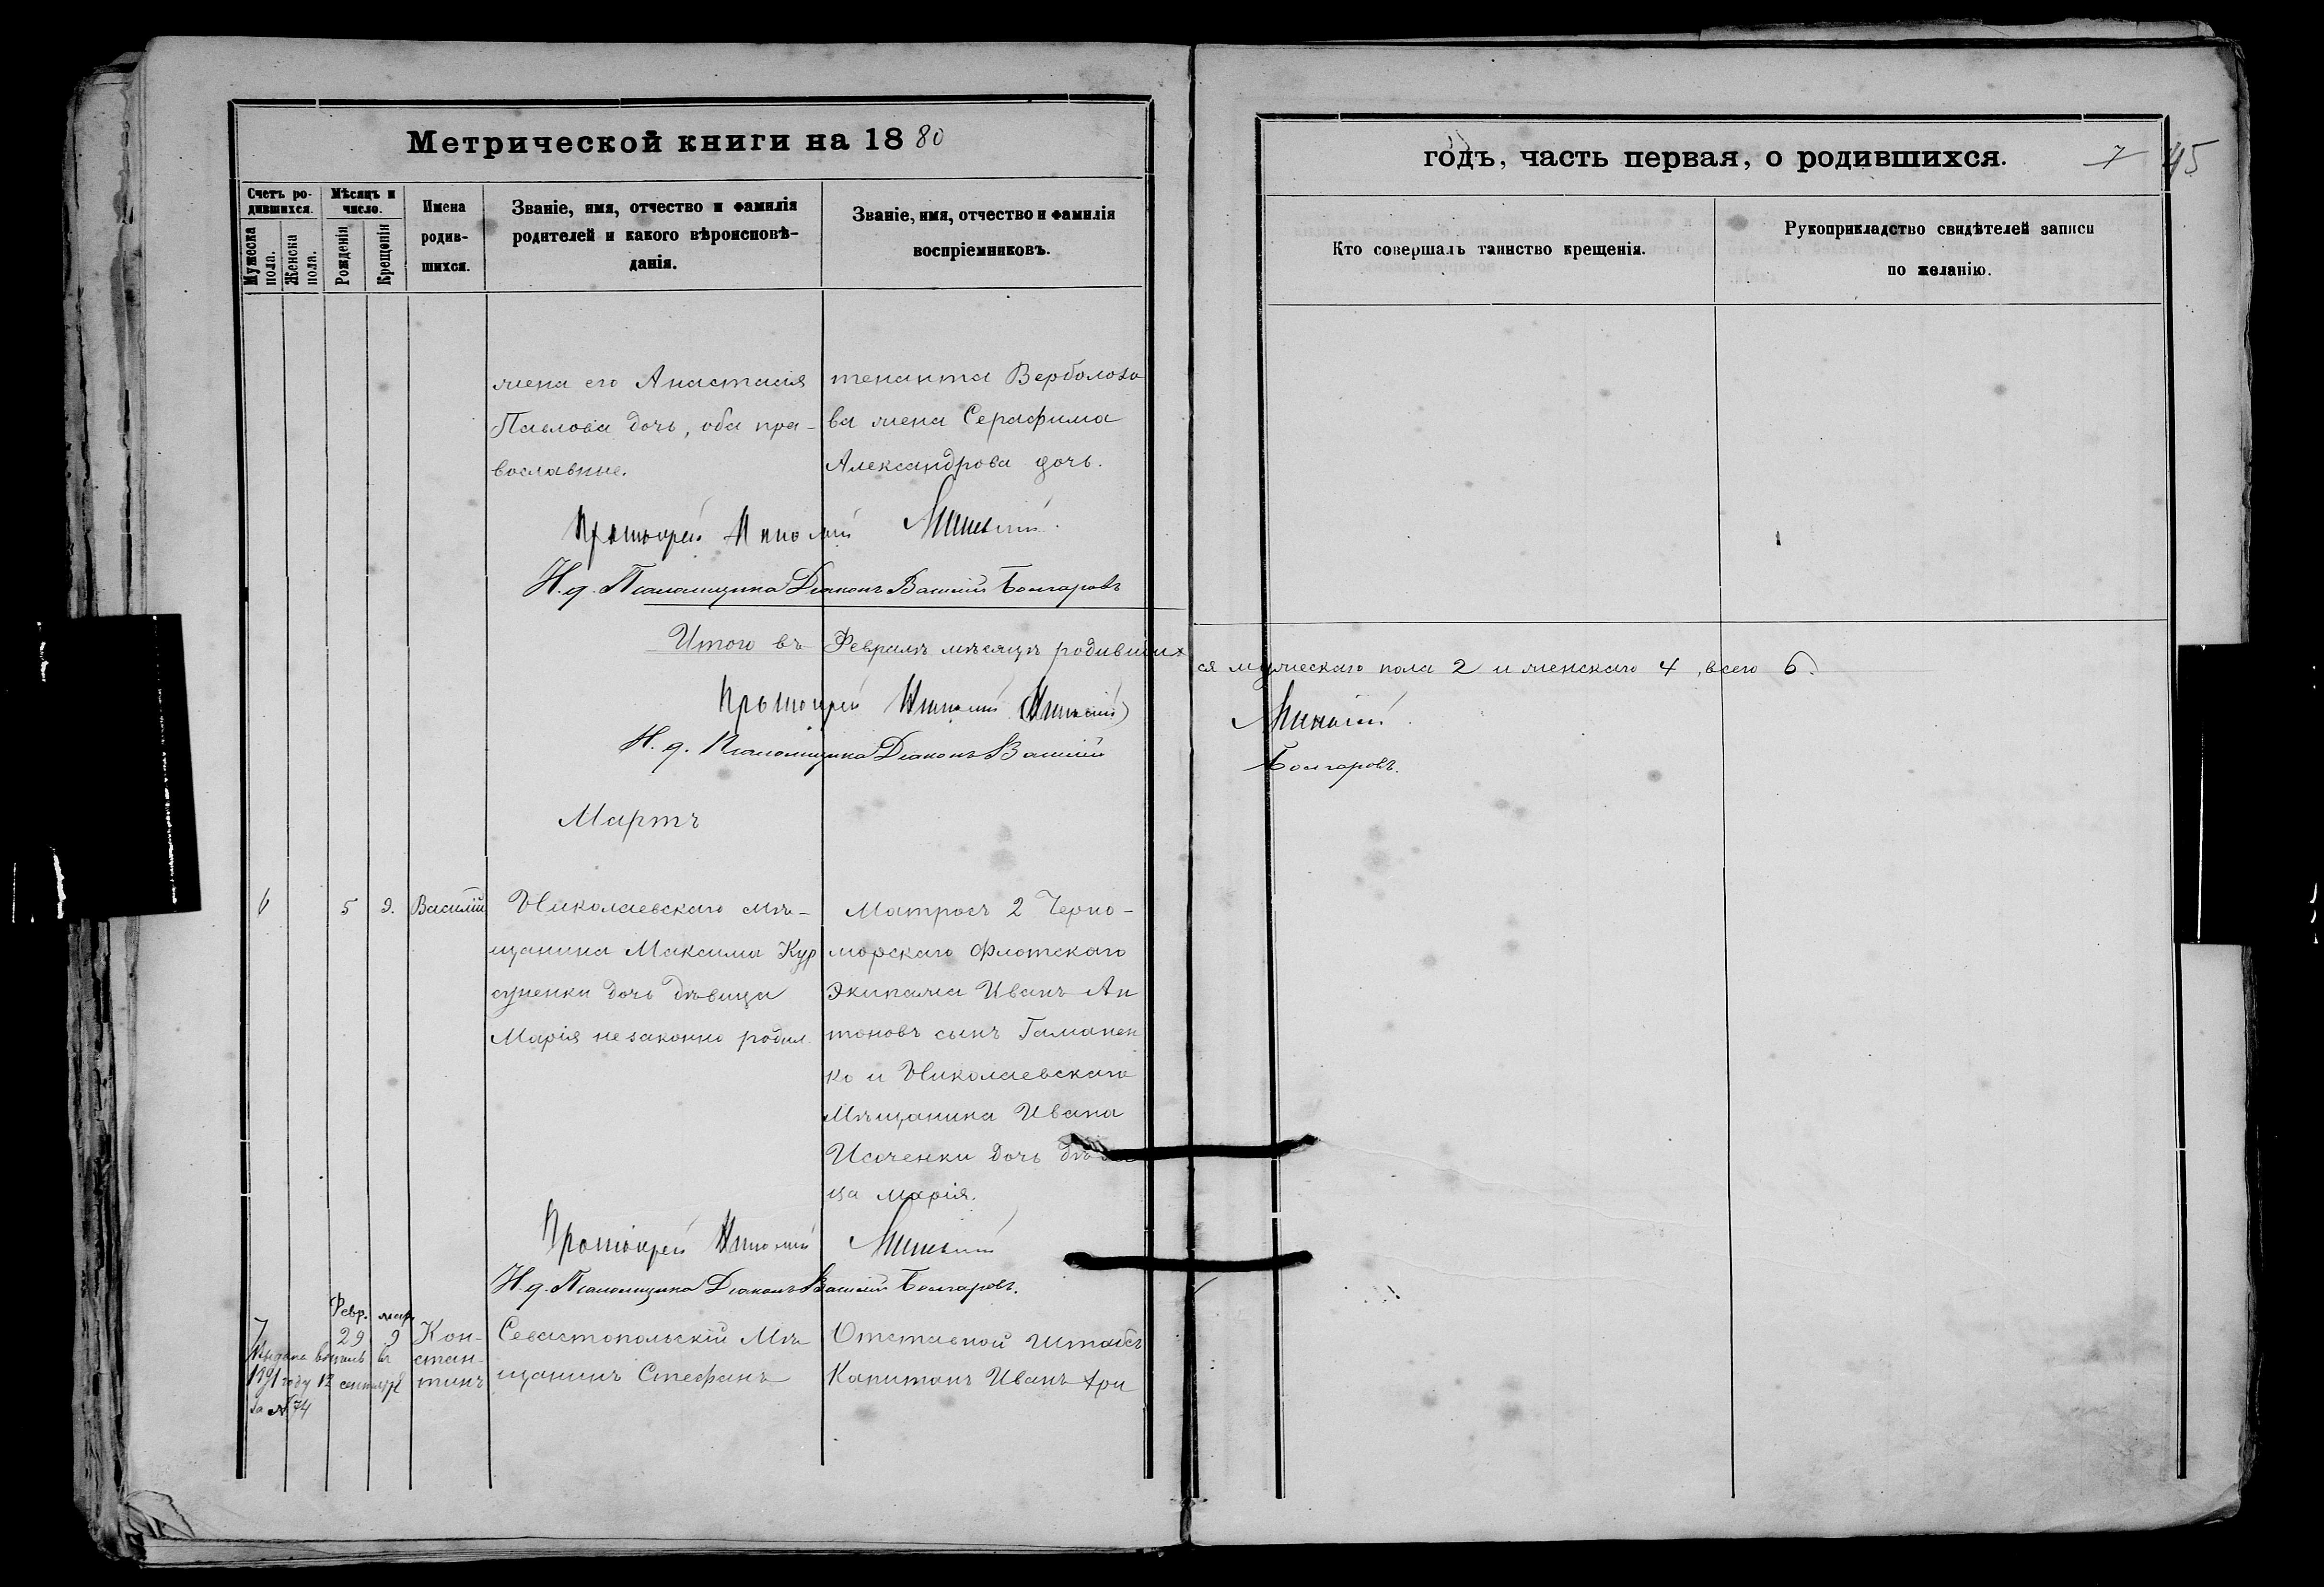 Метрической книги на 1880
годъ, часть первая, о родившихся.
7 45
Счетъ ро-
дившихся.
Мужеска пола.
Женска пола.
Мѣсяцъ и
число.
Рожденія
Крещенія
Имена
родив-
шихся.
Званіе, имя, отчество и фамилія
родителей и какого вѣроисповѣ-
данія.
Званіе, имя, отчество и фамилія
воспріемниковъ.
Кто совершалъ таинство крещенія.
Рукоприкладство свидѣтелей записи
по желанію.
жена его Анастасія
Павлова дочь, оба пра-
вославные.
тенанта Верболозо
ва жена Серафима
Александрова дочь.
Протоіерей
И. д. Псаломщика Діаконъ Василій Болгаровъ
Итого въ Февралѣ мѣсяцѣ родивших
ся мужескаго пола 2 и женскаго 4, всего 6.
Протоіерей
И. д. Псаломщика Діаконъ Василій
Болгаровъ.
Мартъ
6 5 9. Василій
Николаевскаго мѣ-
щанина Максима Кур
суненки дочь дѣвица
Марія незаконно родил
Матросъ 2 Черно-
морскаго флотскаго
Экипажа Иванъ Ан
тоновъ сынъ Гаманен
ко и Николаевскаго
Мѣщанина Ивана
Исаченки дочь
ца Марія.
Протоіерей
И. д. Псаломщика Діаконъ Василій Болгаровъ.
Февр. мар
7 29 9 Кон-
стан-
тинъ
въ
году 12 сентября
за № 74
Севастопольскій Мѣ
щанинъ Стефанъ
Отставной Штабсъ
Капитанъ Иванъ